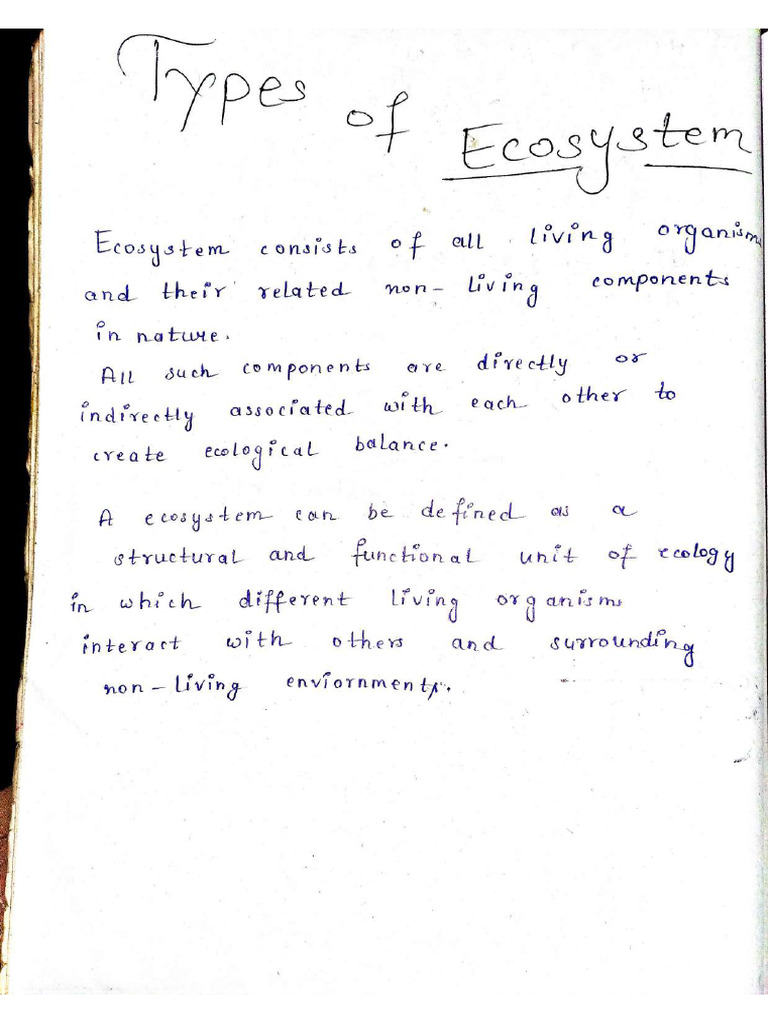 Types of Ecosystem
Ecosystem consists of all living organism
and their related non-living components
in nature.
All such components are directly or
indirectly associated with each other to
create ecological balance.
A ecosystem can be defined as a
structural and functional unit of ecology
in which different living organisms
interact with others and surrounding
non-living enviornments.